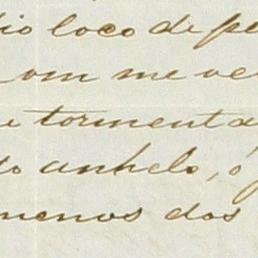 dio loco de pe
om me ve
e torment
to anhelo, ó
menos dos